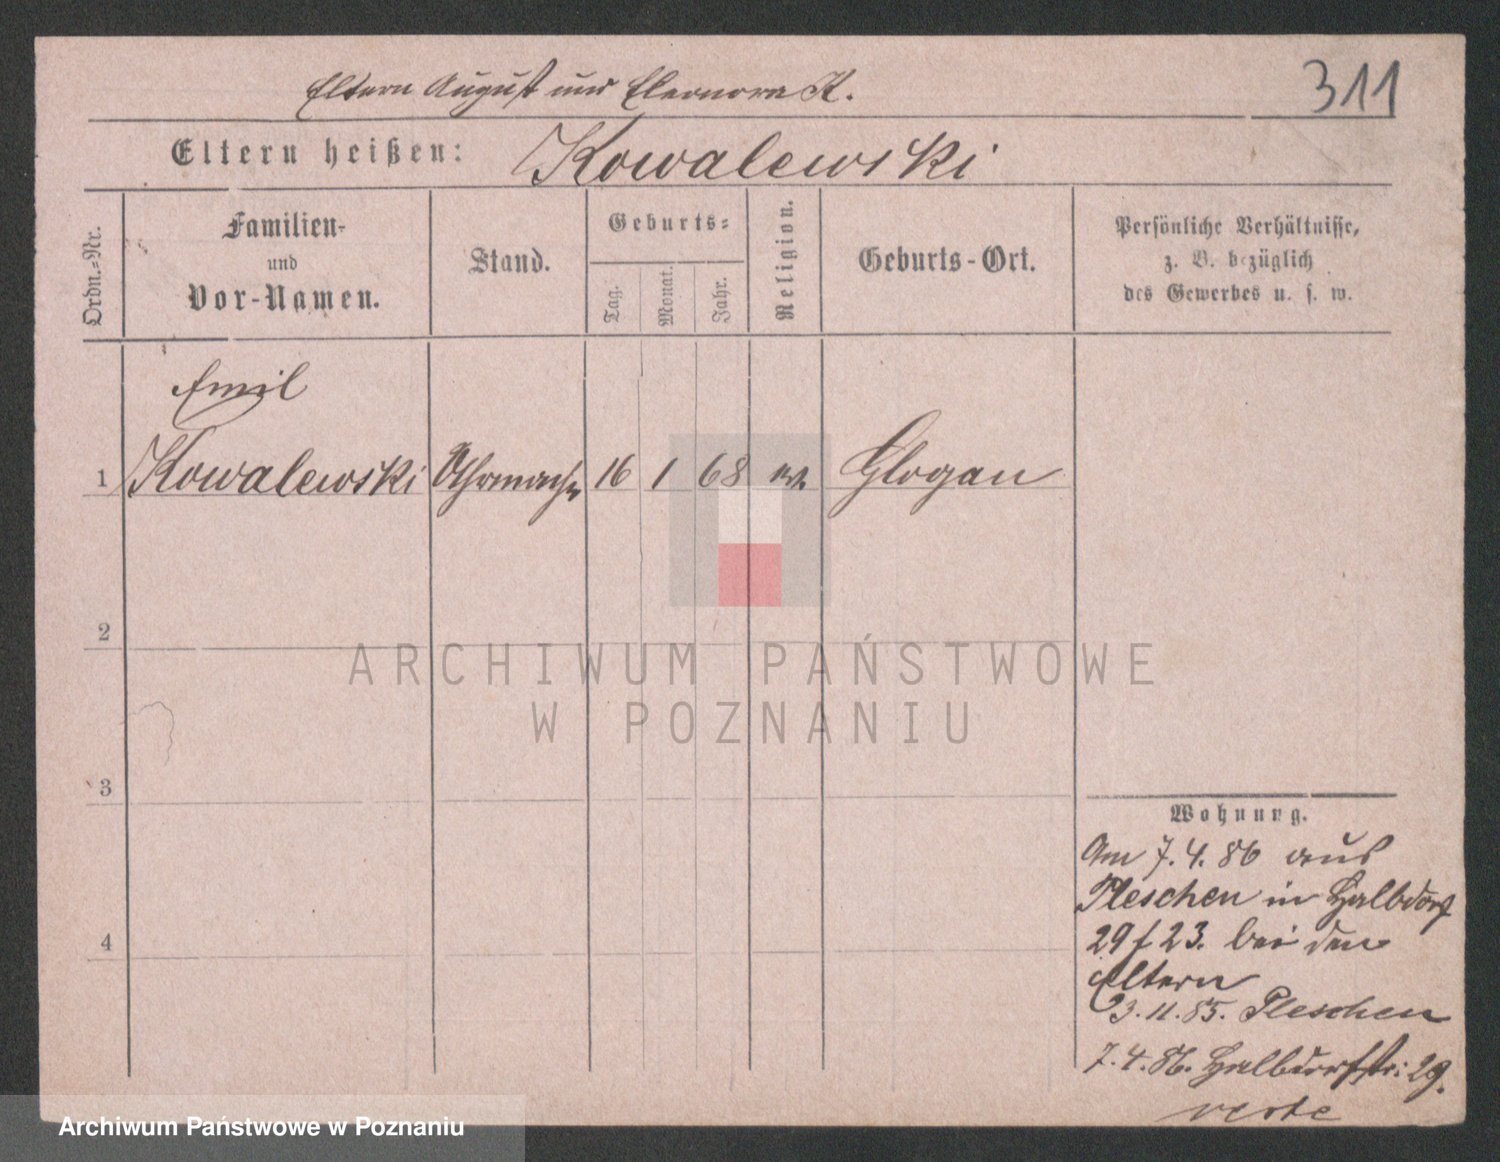 311
Eltern August und Eleonora K.
Eltern heißen: Kowalewski
Ordn.-Nr.
Familien-
und
Vor-Namen.
Stand.
Geburts-
Tag.
Monat.
Jahr.
Religion.
Geburts-Ort.
Persönliche Verhältnisse,
z. B. bezüglich
des Gewerbes u. s. w.
Emil
1 Kowalewski Uhrmacher 16 1 68 ev. Glogau
2
3
4
Wohnung.
Am 7.4.86 aus
Pleschen in Halbdorf
29 f 23. bei den
Eltern
23.11.85. Pleschen
7.4.86. Halbdorfstr: 29.
verte
ARCHIWUM PAŃSTWOWE
W POZNANIU
Archiwum Państwowe w Poznaniu